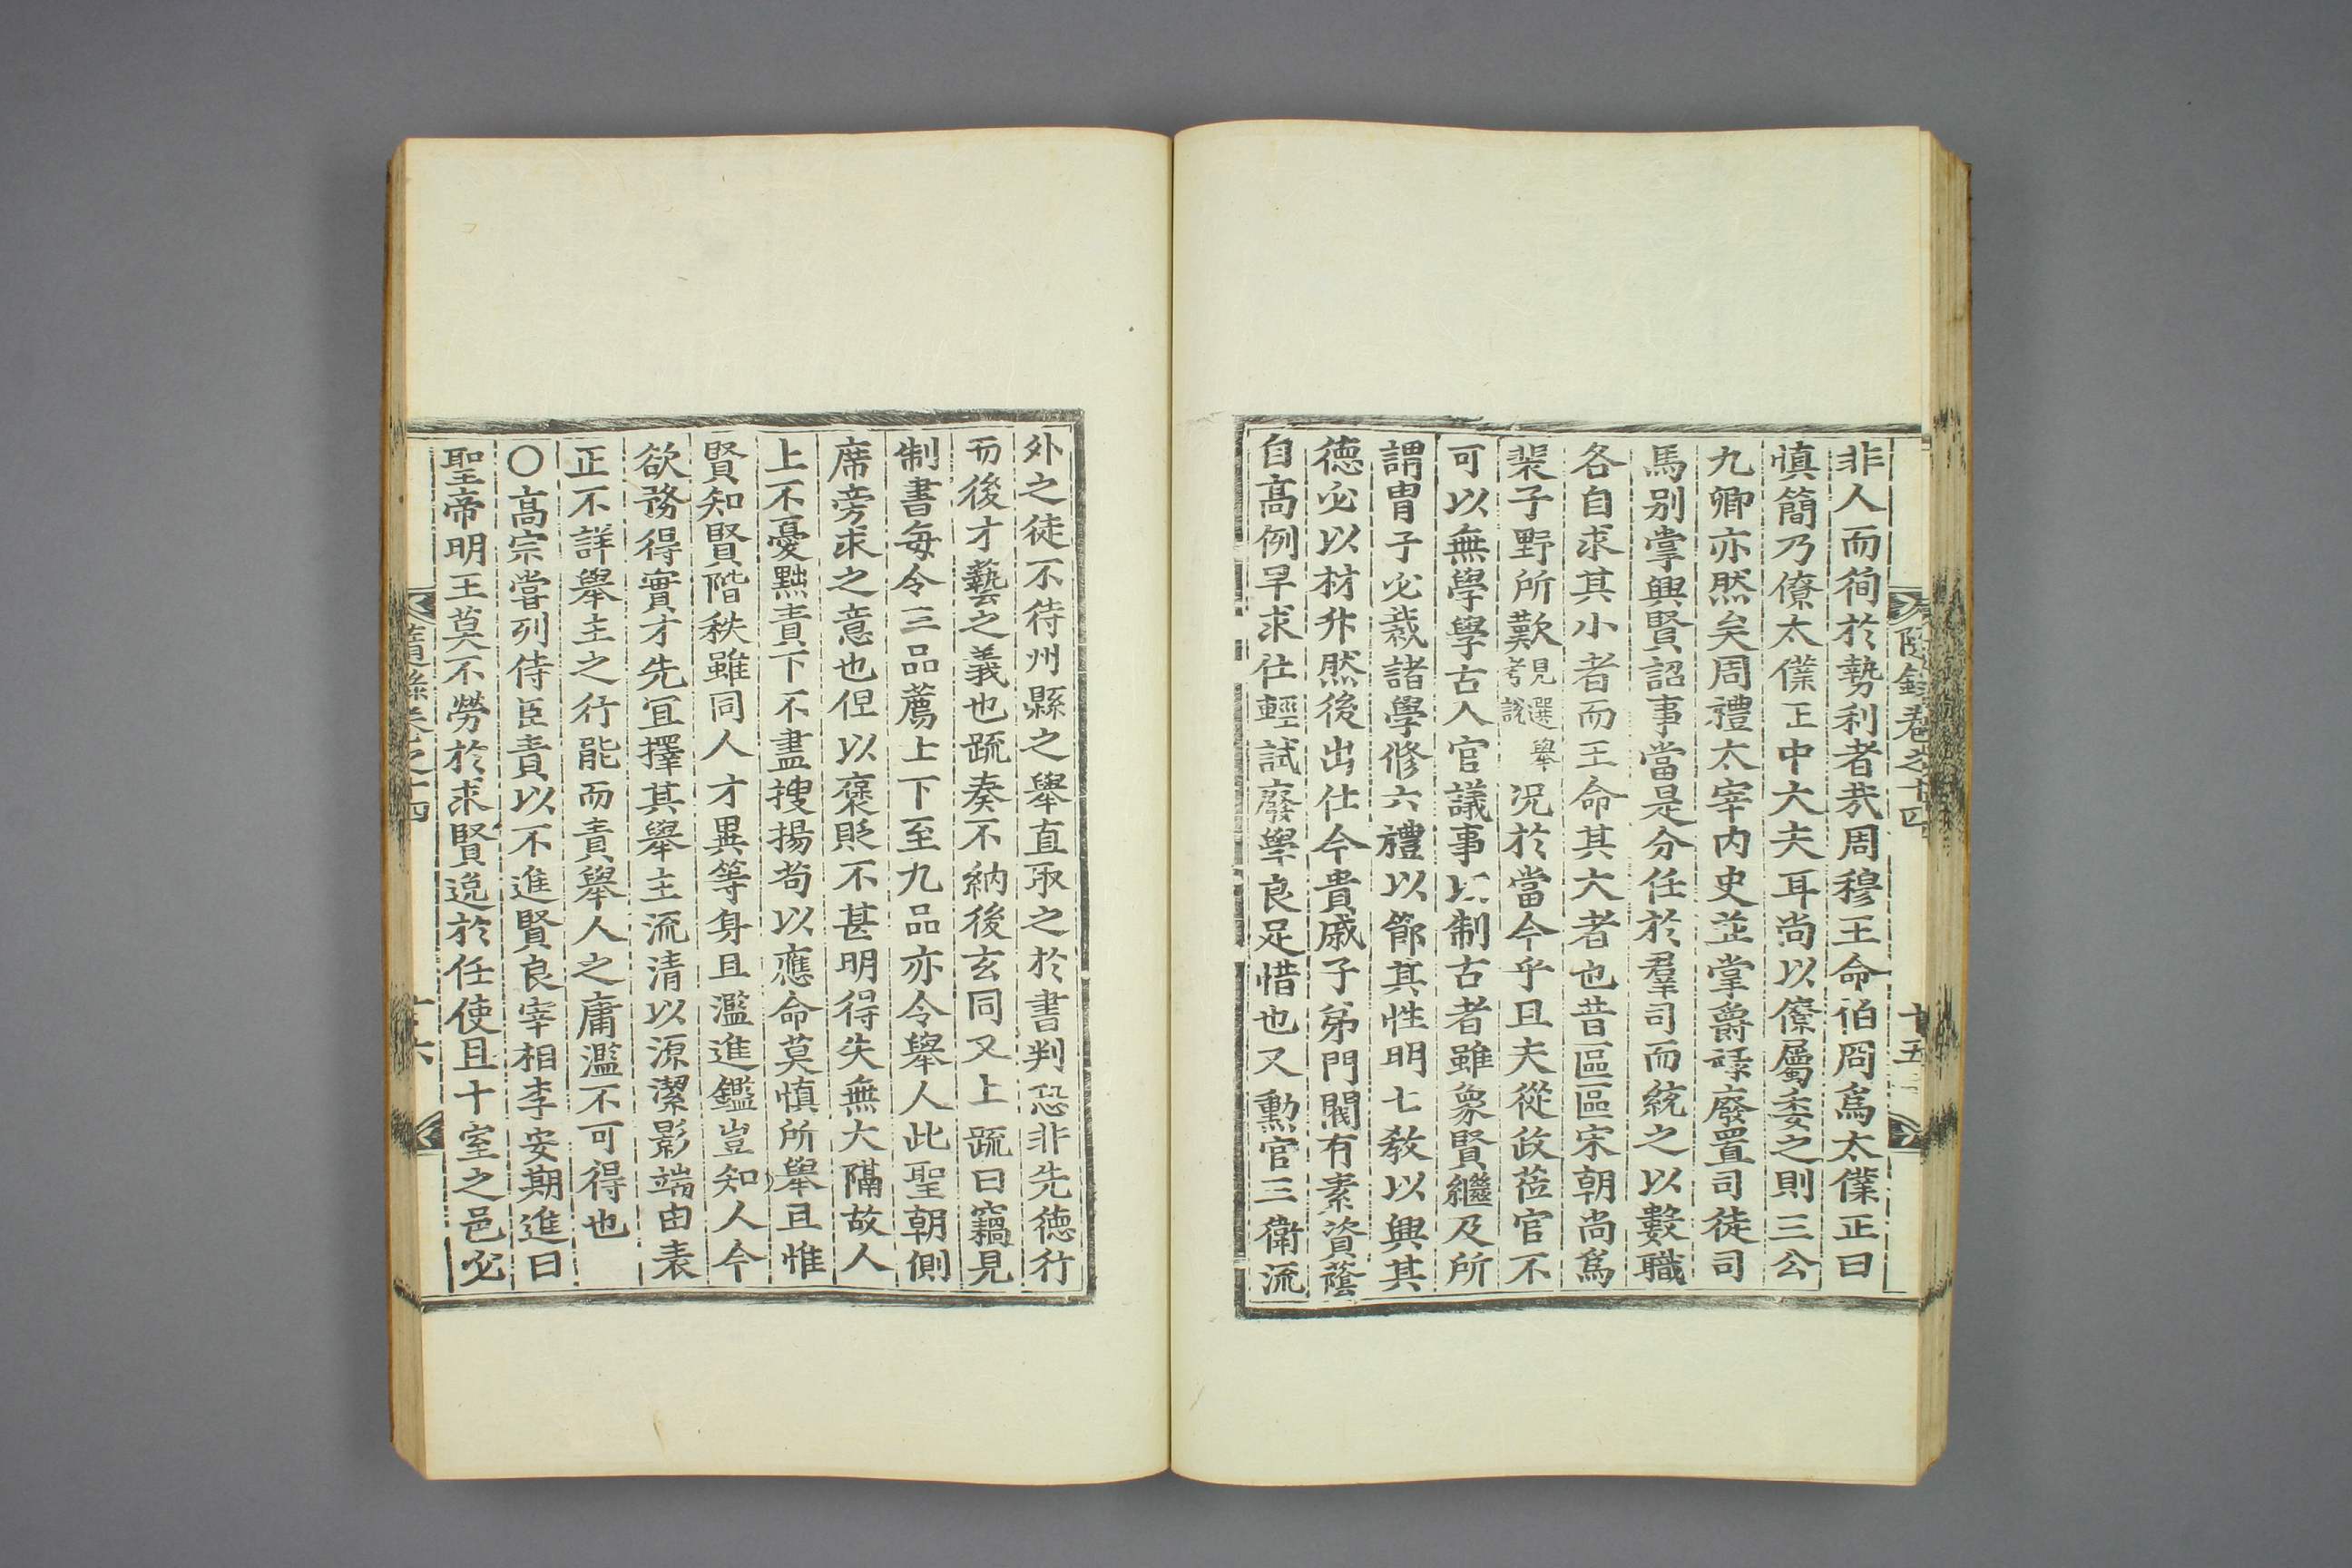 隨錄卷之十四
十五
非人而徇於勢利者㢤周穆王命伯冏爲太僕正曰
慎簡乃僚太僕正中大夫耳尚以僚屬委之則三公
九卿亦然矣周禮太宰内史並掌爵祿廢置司徒司
馬别掌興賢詔事當是分任於羣司而統之以數職
各自求其小者而王命其大者也昔區區宋朝尚爲
裴子野所歎見選舉考說况於當今乎且夫從政莅官不
可以無學學古入官議事以制古者雖象賢繼及所
謂胄子必裁諸學修六禮以節其性明七敎以興其
德必以材升然後出仕今貴戚子弟門閥有素資蔭
自高例早求仕輕試廢學良足惜也又勳官三衛流
外之徒不待州縣之舉直取之於書判恐非先德行
而後才藝之義也䟽奏不納後玄同又上䟽曰竊見
制書每令三品薦上下至九品亦令舉人此聖朝側
席旁求之意也但以褒貶不甚明得失無大隔故人
上不憂黜責下不盡搜揚苟以應命莫慎所舉且惟
賢知賢階秩雖同人才異等身且濫進鑑豈知人今
欲務得實才先冝擇其舉主流清以源潔影端由表
正不詳舉主之行能而責舉人之庸濫不可得也
〇高宗嘗列侍臣責以不進賢良宰相李安期進曰
聖帝明王莫不勞於求賢逸於任使且十室之邑必
隨錄卷之十四
十六